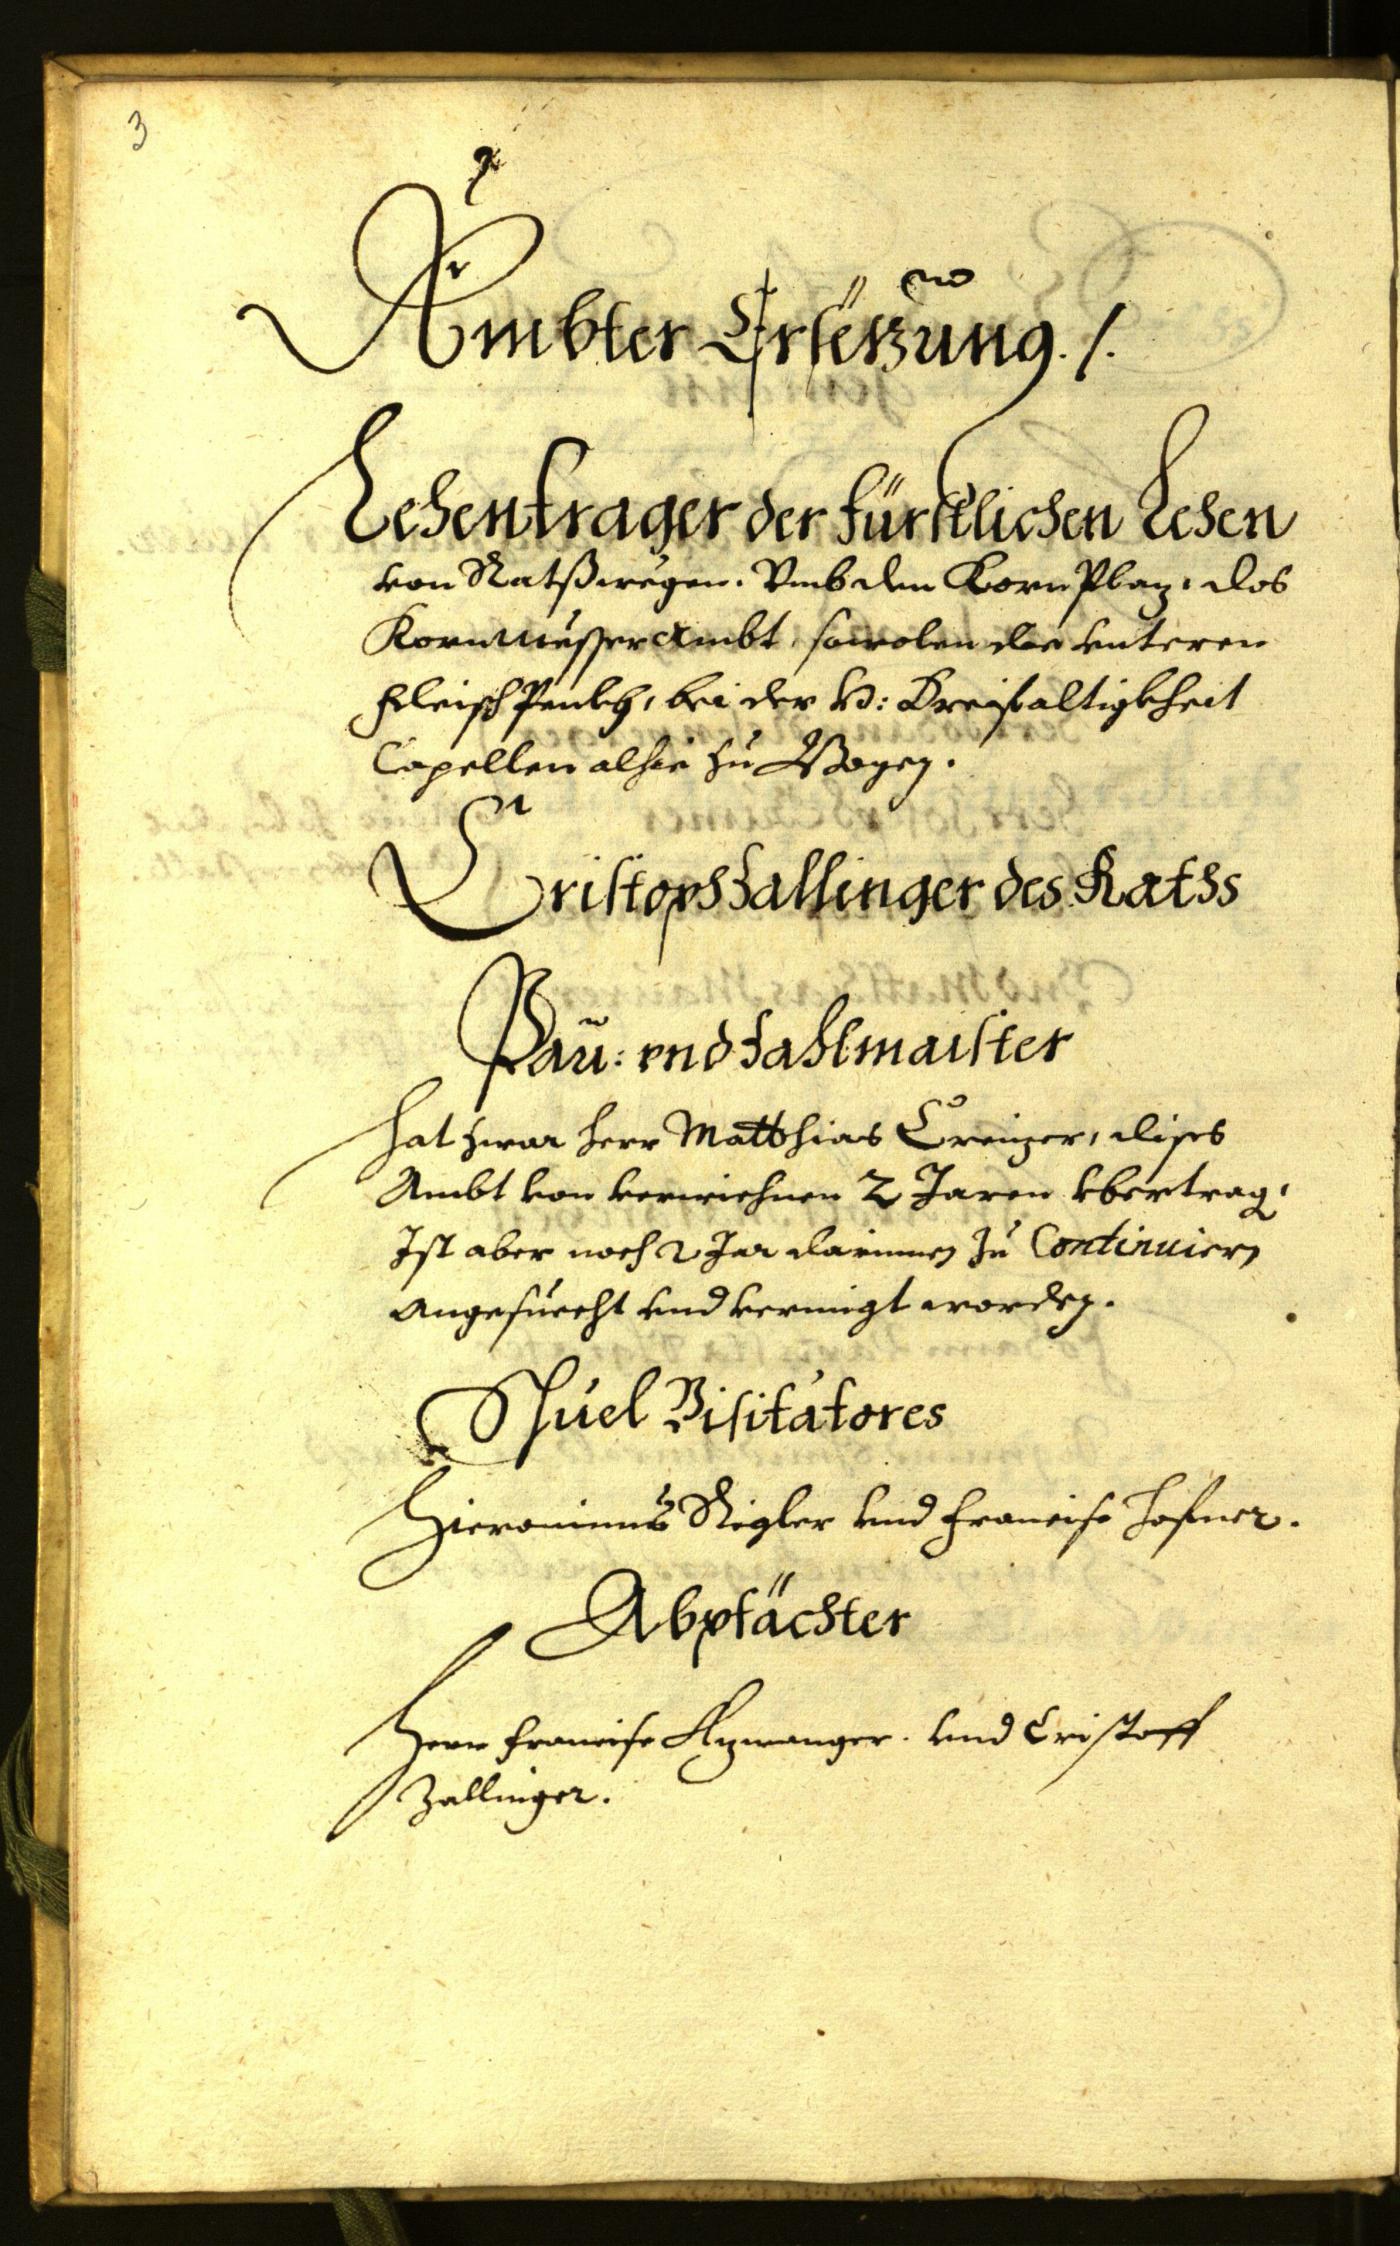 3
Ämbter Ersëtzung. /.
Lehentrager der fürstlichen Lehen
von Ratßwegen. Vmb den Korn Plaz, das
Kornmësser Ambt, sowolen die vnteren
Fleisch Penkh, bei der H: Dreifaltigkheit
Capellen alhie zu Bozen.
Cristoph Zallinger des Raths
Pau: vnd Zahlmaister
Hat zwar Herr Matthias Creuzer, dises
Ambt von verwichnen 2 Jaren vbertrag,
Ist aber noch 2 Jar darinnen zu Continuiern
Angesuecht vnd vermigt worden.
Shuel Visitatores
Hieronimus Rigler vnd Francisc Hafner.
Abptächter
Herr Francisc Azwanger. vnd Cristoff
Zallinger.